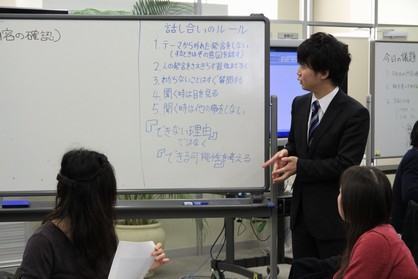 内容の確認)
話し合いのルール
1. テーマから外れた発言をしない
2. 人の発言をさえぎらず最後まできく
3. わからないことはすぐ質問する
4. 聞く時は目を見る
5. 聞く時は他の事をしない
『できない理由』
ではなく
『できる可能性』を考える
今日の議題